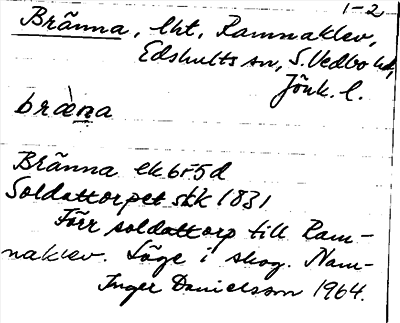 1-2
Bränna, lht, Ramnaklev,
Edshults sn, S. Vedbo hd,
Jönk. l.
bræ̀na
Bränna ek 6f5d
Soldattorpet skk 1831
Förr soldattorp till Ram-
naklev. Läge i skog. Nam-
Inger Danielsson 1964.